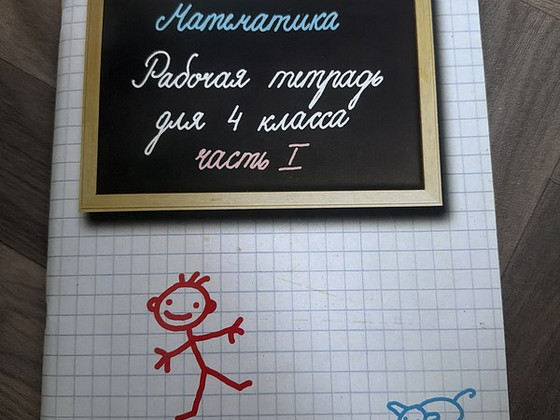 Математика
Рабочая тетрадь
для 4 класса
часть I